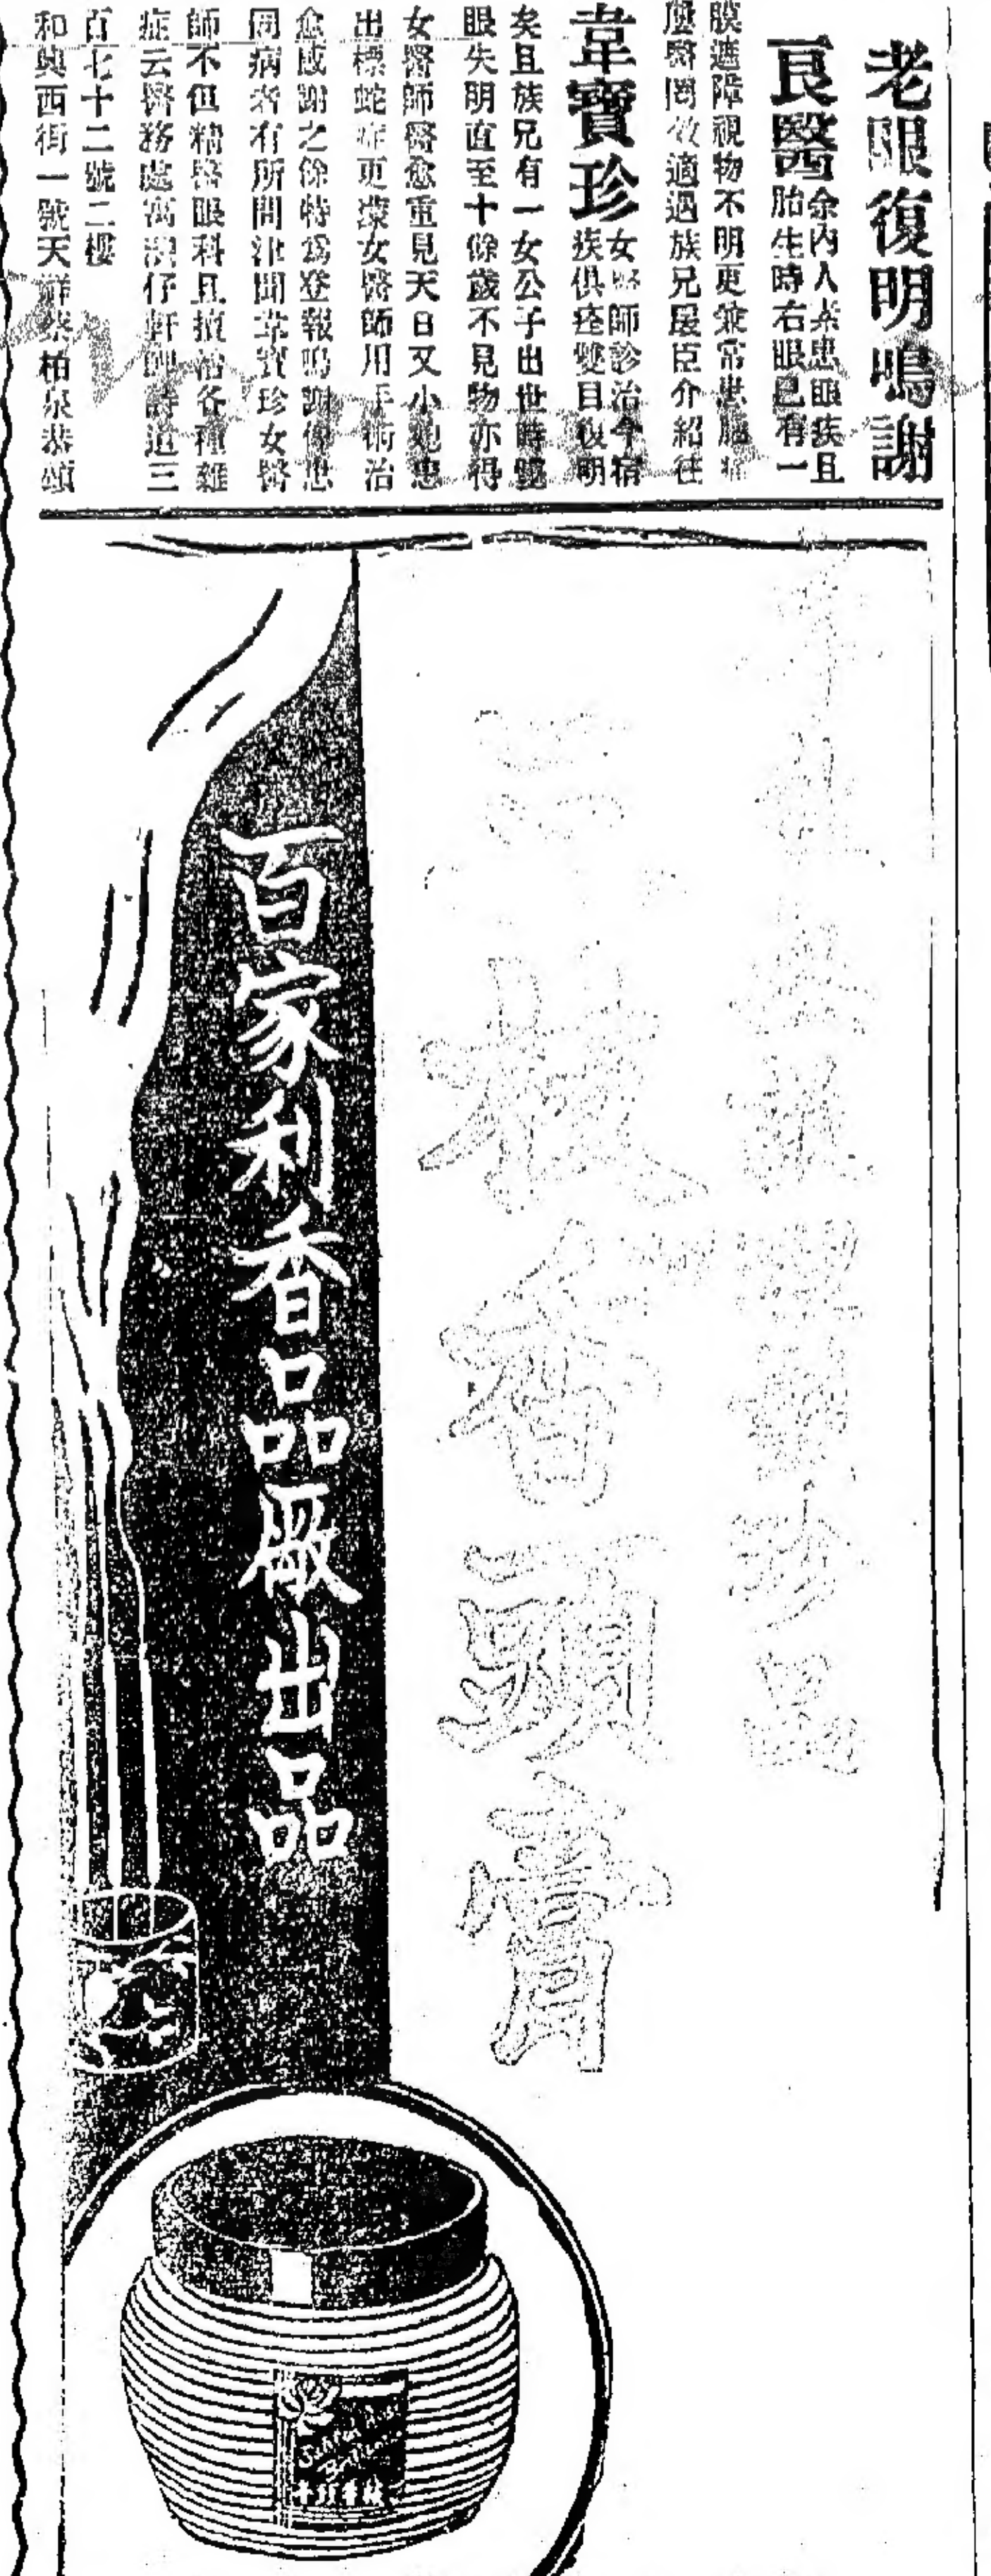 老眼復明鳴謝
良醫
余內人素患眼疾且
胎生時右眼已有一
膜遮障視物不明更兼常患
屢醫罔效適遇族兄展臣介紹往
韋寶珍
女醫師診治今宿
疾俱痊雙目復明
矣且族兄有一女公子出世時
眼失明直至十餘歲不見物亦得
女醫師醫愈重見天日又小兒患
出標蛇症更蒙女醫師用手術治
愈感謝之餘特為登報鳴謝俾患
同病者有所問津聞韋寶珍女醫
師不但精醫眼科且擅治各種雜
症云醫務處寓灣仔軒鯉詩道三
百七十二號二樓
和興西街一號天祥 柏泉恭頌
珍品
三枝香頭膏
百家利香品廠出品